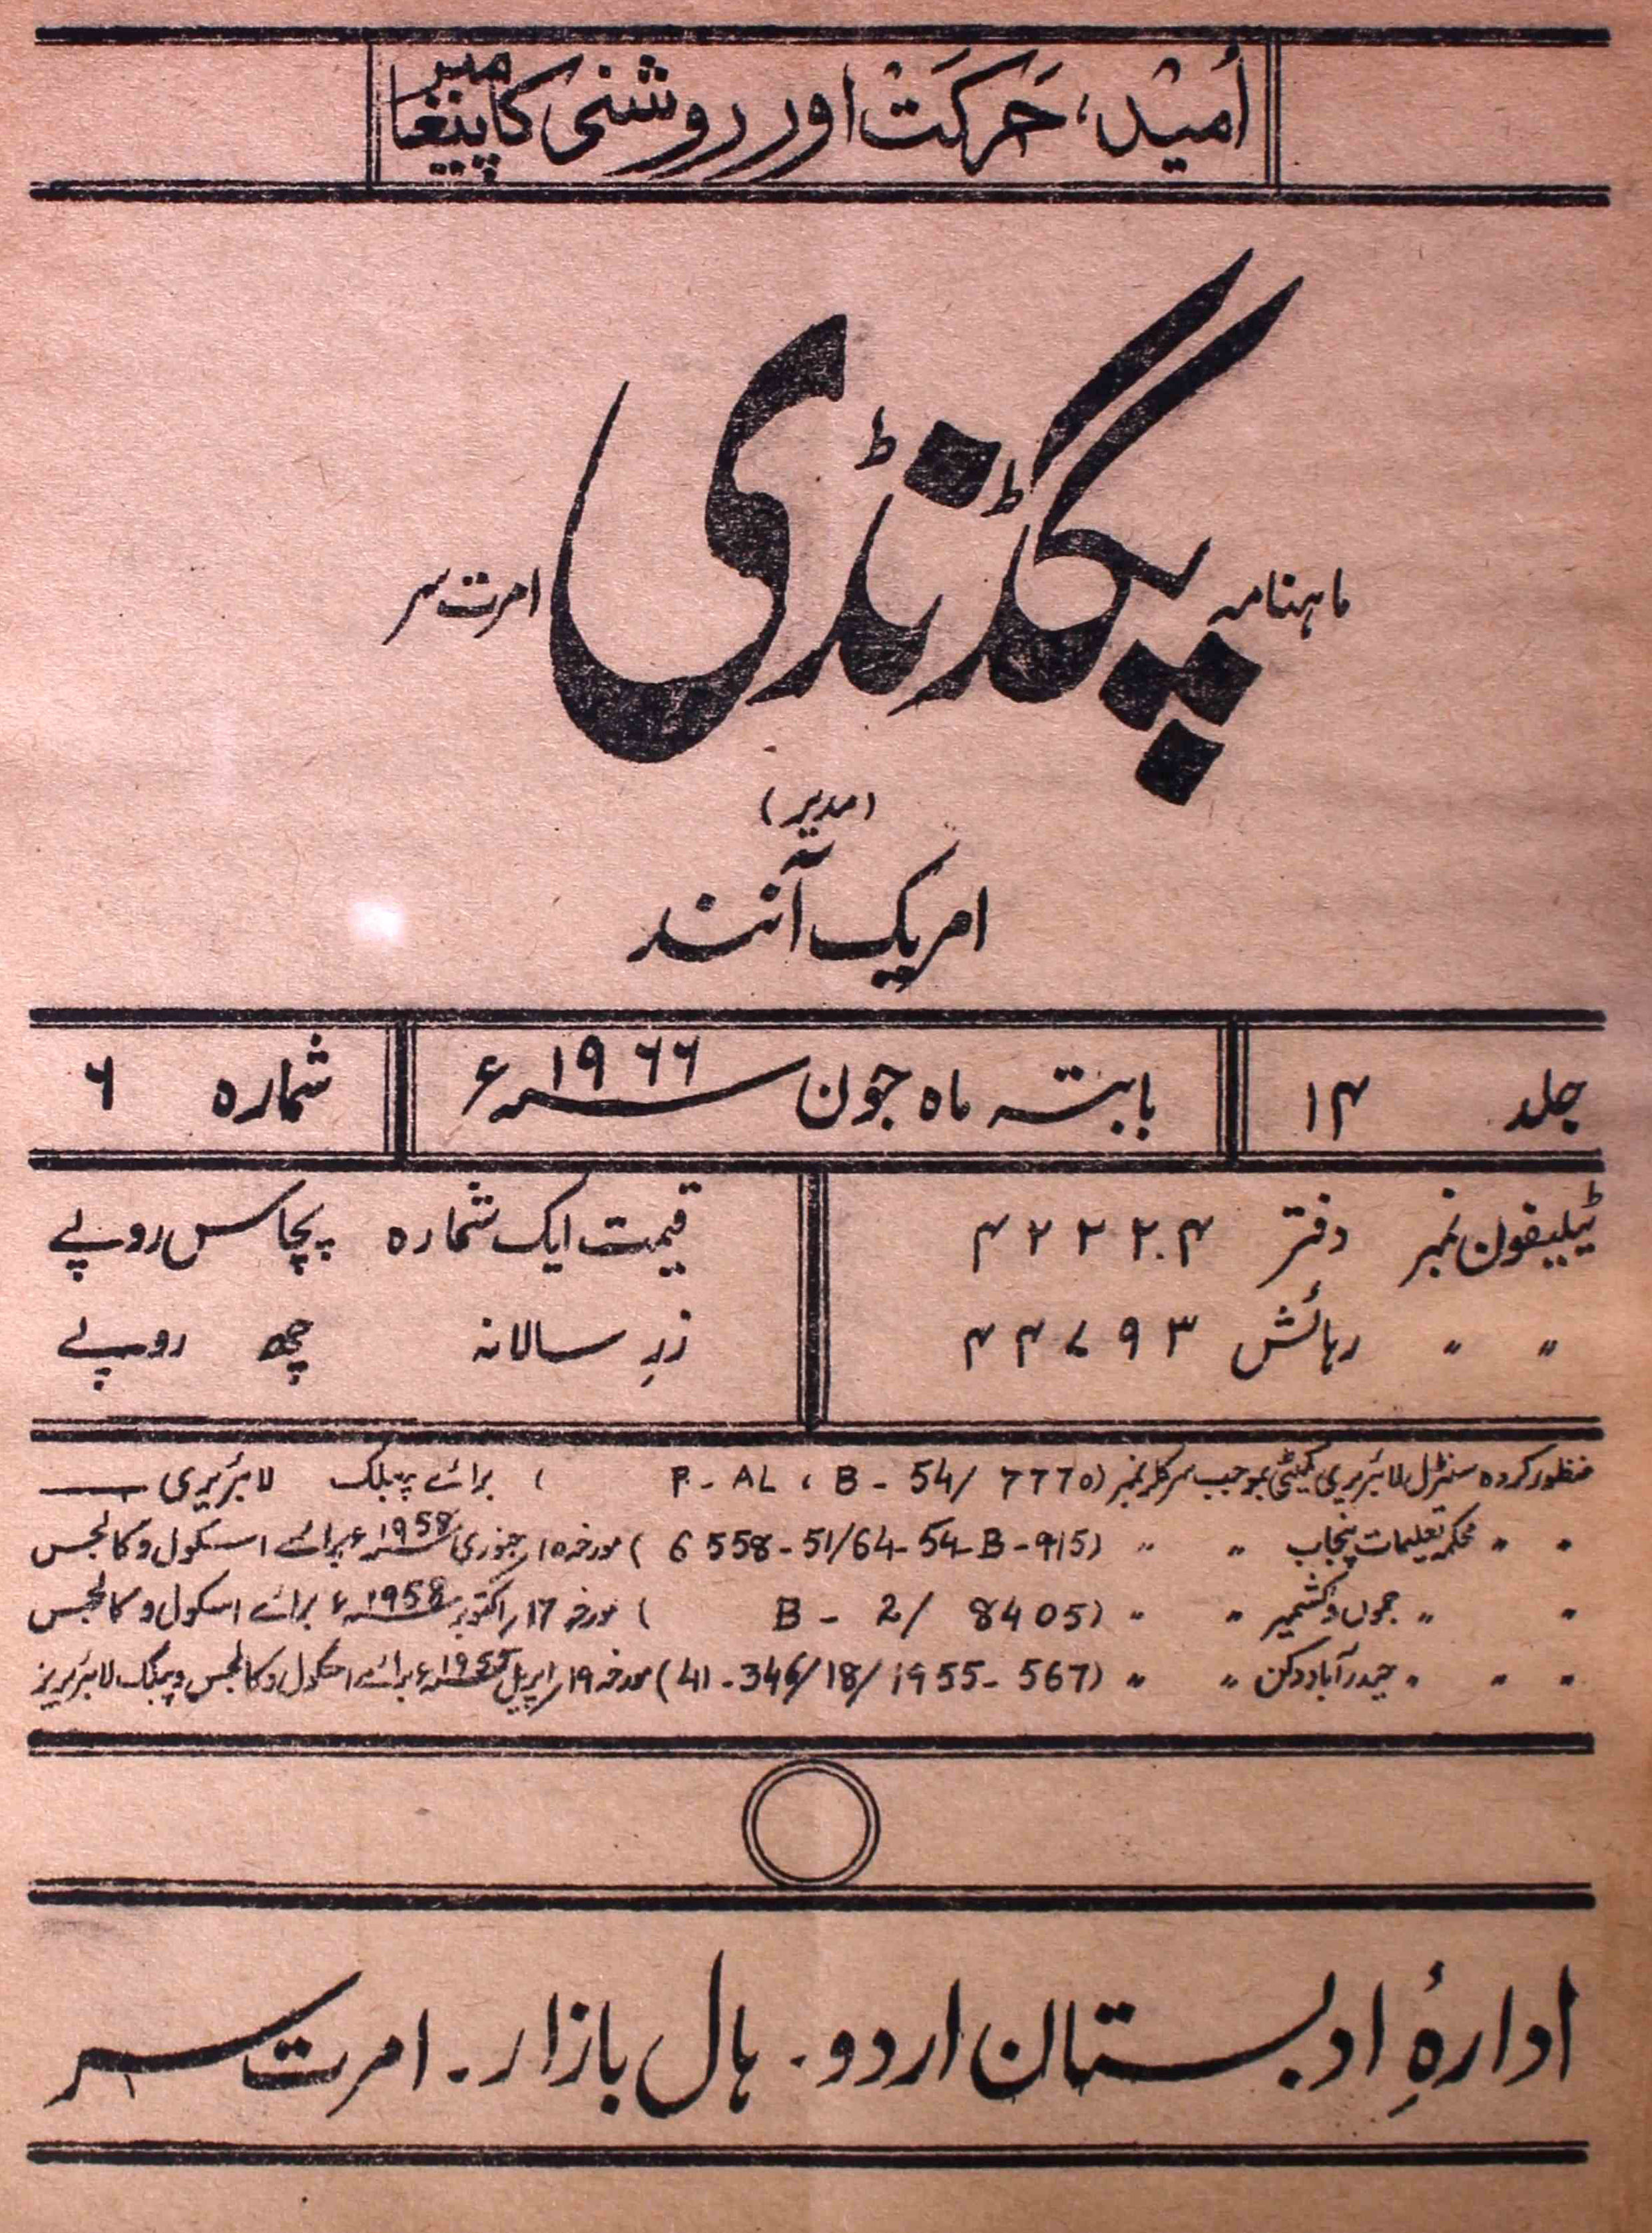 اُمید، حَرکَت اور روشنی کا پیغامبر
ماہنامہ پگڈنڈی امرت سر
(مدیر)
امریک آنند
جلد ۱۴ بابتہ ماہ جون ۱۹۶۶ء شمارہ ۶
ٹیلیفون نمبر دفتر ۴۲۲۲۰۴ قیمت ایک شمارہ پچاس روپے
〃 〃 رہائش ۴۴۷۹۳ زرِ سالانہ چھ روپے
منظور کردہ سنٹرل لائبریری کمیٹی بموجب سرکلر نمبر (P-AL، B-54/ 7770) برائے پبلک لائبریری
〃 〃 محکمہ تعلیمات پنجاب 〃 〃 (6558-51/64-54-B-915) مورخہ ۱۵ر جنوری 1958ء برائے اسکول و کالجس
〃 〃 جموں و کشمیر 〃 〃 (B-2/ 8405) مورخہ 17ر اکتوبر 1958ء برائے اسکول و کالجس
〃 〃 〃 حیدرآباد دکن 〃 〃 (41-346/18/1955-567) مورخہ ۱۹ر اپریل 1955ء برائے اسکول و کالجس و پبلک لائبریریز
ادارۂِ ادبستان اردو۔ ہال بازار۔ امرت سر